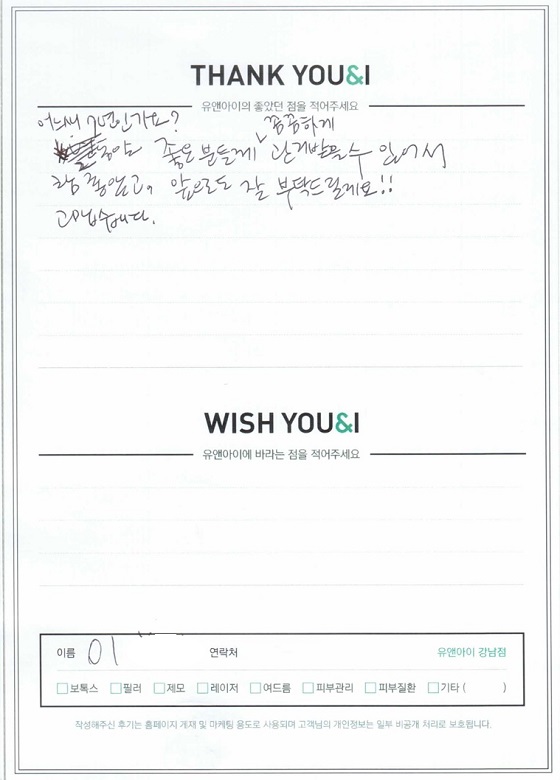 THANK YOU&I
유앤아이의 좋았던 점을 적어주세요
어느새 7년인가요? 꼼꼼하게
동안 좋은분들께 관리받을수 있어서
참 좋았고, 앞으로도 잘 부탁드릴게요!!
고맙습니다.
WISH YOU&I
유앤아이에 바라는 점을 적어주세요
이름 이 연락처 유앤아이 강남점
보톡스 필러 제모 레이저 여드름 피부관리 피부질환 기타 ( )
작성해주신 후기는 홈페이지 게재 및 마케팅 용도로 사용되며 고객님의 개인정보는 일부 비공개 처리로 보호됩니다.